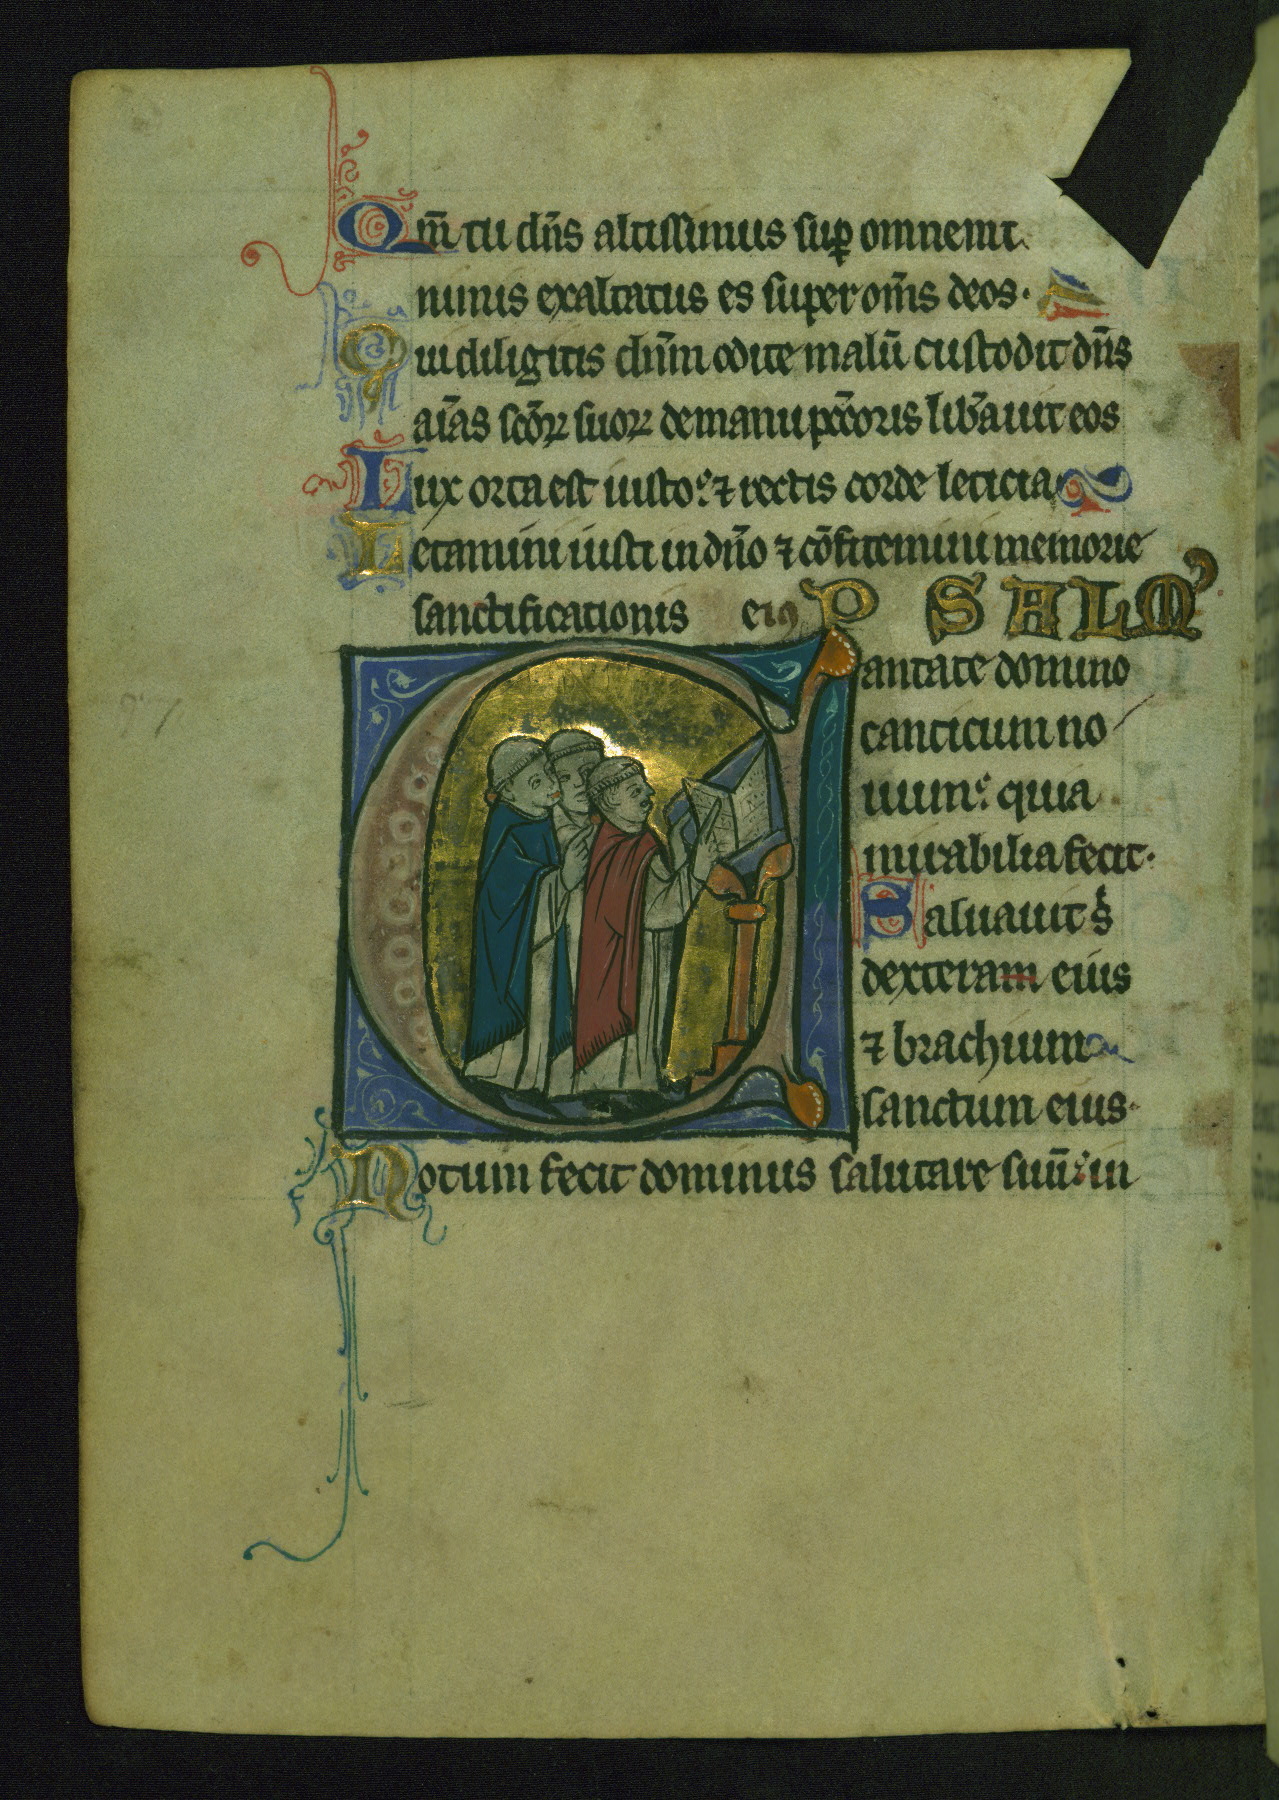 Qm̄ tu dn̄s altissimus suꝑ omnem t̄
nimis exaltatus es super om̄s deos·
Qui diligitis dn̄m odite malū custodit dn̄s
aīas scōꝝ suoꝝ de manu pccōris lib̄auit eos
Lux orta est iusto: ⁊ rectis corde leticia
Letamini iusti in dn̄o ⁊ cōfitemini memorie
sanctificationis eiꝰ PSALMꝰ
Cantate domino
canticum no
uum: quia
mirabilia fecit·
Saluauit s̄
dexteram eius
⁊ brachium
sanctum eius·
Notum fecit dominus salutare suū: in